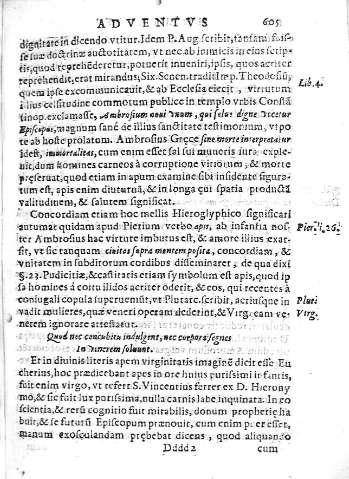 ADVENTVS 605
dignitate in dicendo vtitur. Idem P. Aug scribit, tantam fuis-
se suæ doctrinæ auctoritatem, vt nec ab inimicis in eius scrip-
tis, quod reprehenderetur, potuerit inueniri, ipsis, quos acriter
reprehendit, erat mirandus, Six. Senen. tradit Imp. Theodosiũ,
quem ipse excommunicauit, & ab Ecclesia eiecit, virtutum Lib. 4.
illius celsitudine commotum publice in templo vrbis Constã
tinop. exclamasse, Ambrosium noui vnum, qui solus digne vocetur
Episcopus, magnum sanè de illius sanctitate testimonium, vtpo
te ab hoste prolatum. Ambrosius Græce sine morte interpretatur
idest, immortalitas, cum enim esset sal sui muneris iure exple-
uit, dum homines carneos à corruptione vitiorum, & morte
præseruat, quod etiam in apum examine sibi insidente figura-
tum est, apis enim diuturnã, & in longa qui spatia productã
valitudinem, & salutem significat.
Concordiam etiam hoc mellis Hieroglyphico significari
autumat quidam apud Pierium verbo apis, ab infantia nos- Pier. li. 26.
ter Ambrosius hac virtute imbutus est, & amore illius exar-
sit, vt sic tanquam ciuitas supra montem posita, concordiam, &
vnitatem in subditorum cordibus disseminaret, de qua dixi
§. 23. Pudicitiæ, & castitatis etiam symbolum est apis, quod ip
sa homines à coitu illidos acriter oderit, & eos, qui recentes à
coniugali copula superueniũt, vt Plutarc. scribit, acriusque in Plut.
vadit mulieres, quæ veneri operam dederint, & Virg. eam ve- Virg.
nerem ignorare attestatur.
Quod nec concubitu indulgent, nec corpora segnes
In venerem soluunt.
Et in diuinis literis apem virginitatis imaginẽ dicit esse Eu
cherius, hoc prædicebant apes in ore huius purissimi infantis,
fuit enim virgo, vt refert S. Vincentius ferrer ex D. Hierony
mo, & sic fuit lux potissima, nulla carnis labe inquinata. In co
scientia, & rerũ cognitio fuit mirabilis, donum prophetiæ ha
buit, & se futurũ Episcopum prænouit, cum enim puer esset,
manum exosculandam præbebat dicens, quod aliquando
Dddd 2 cum